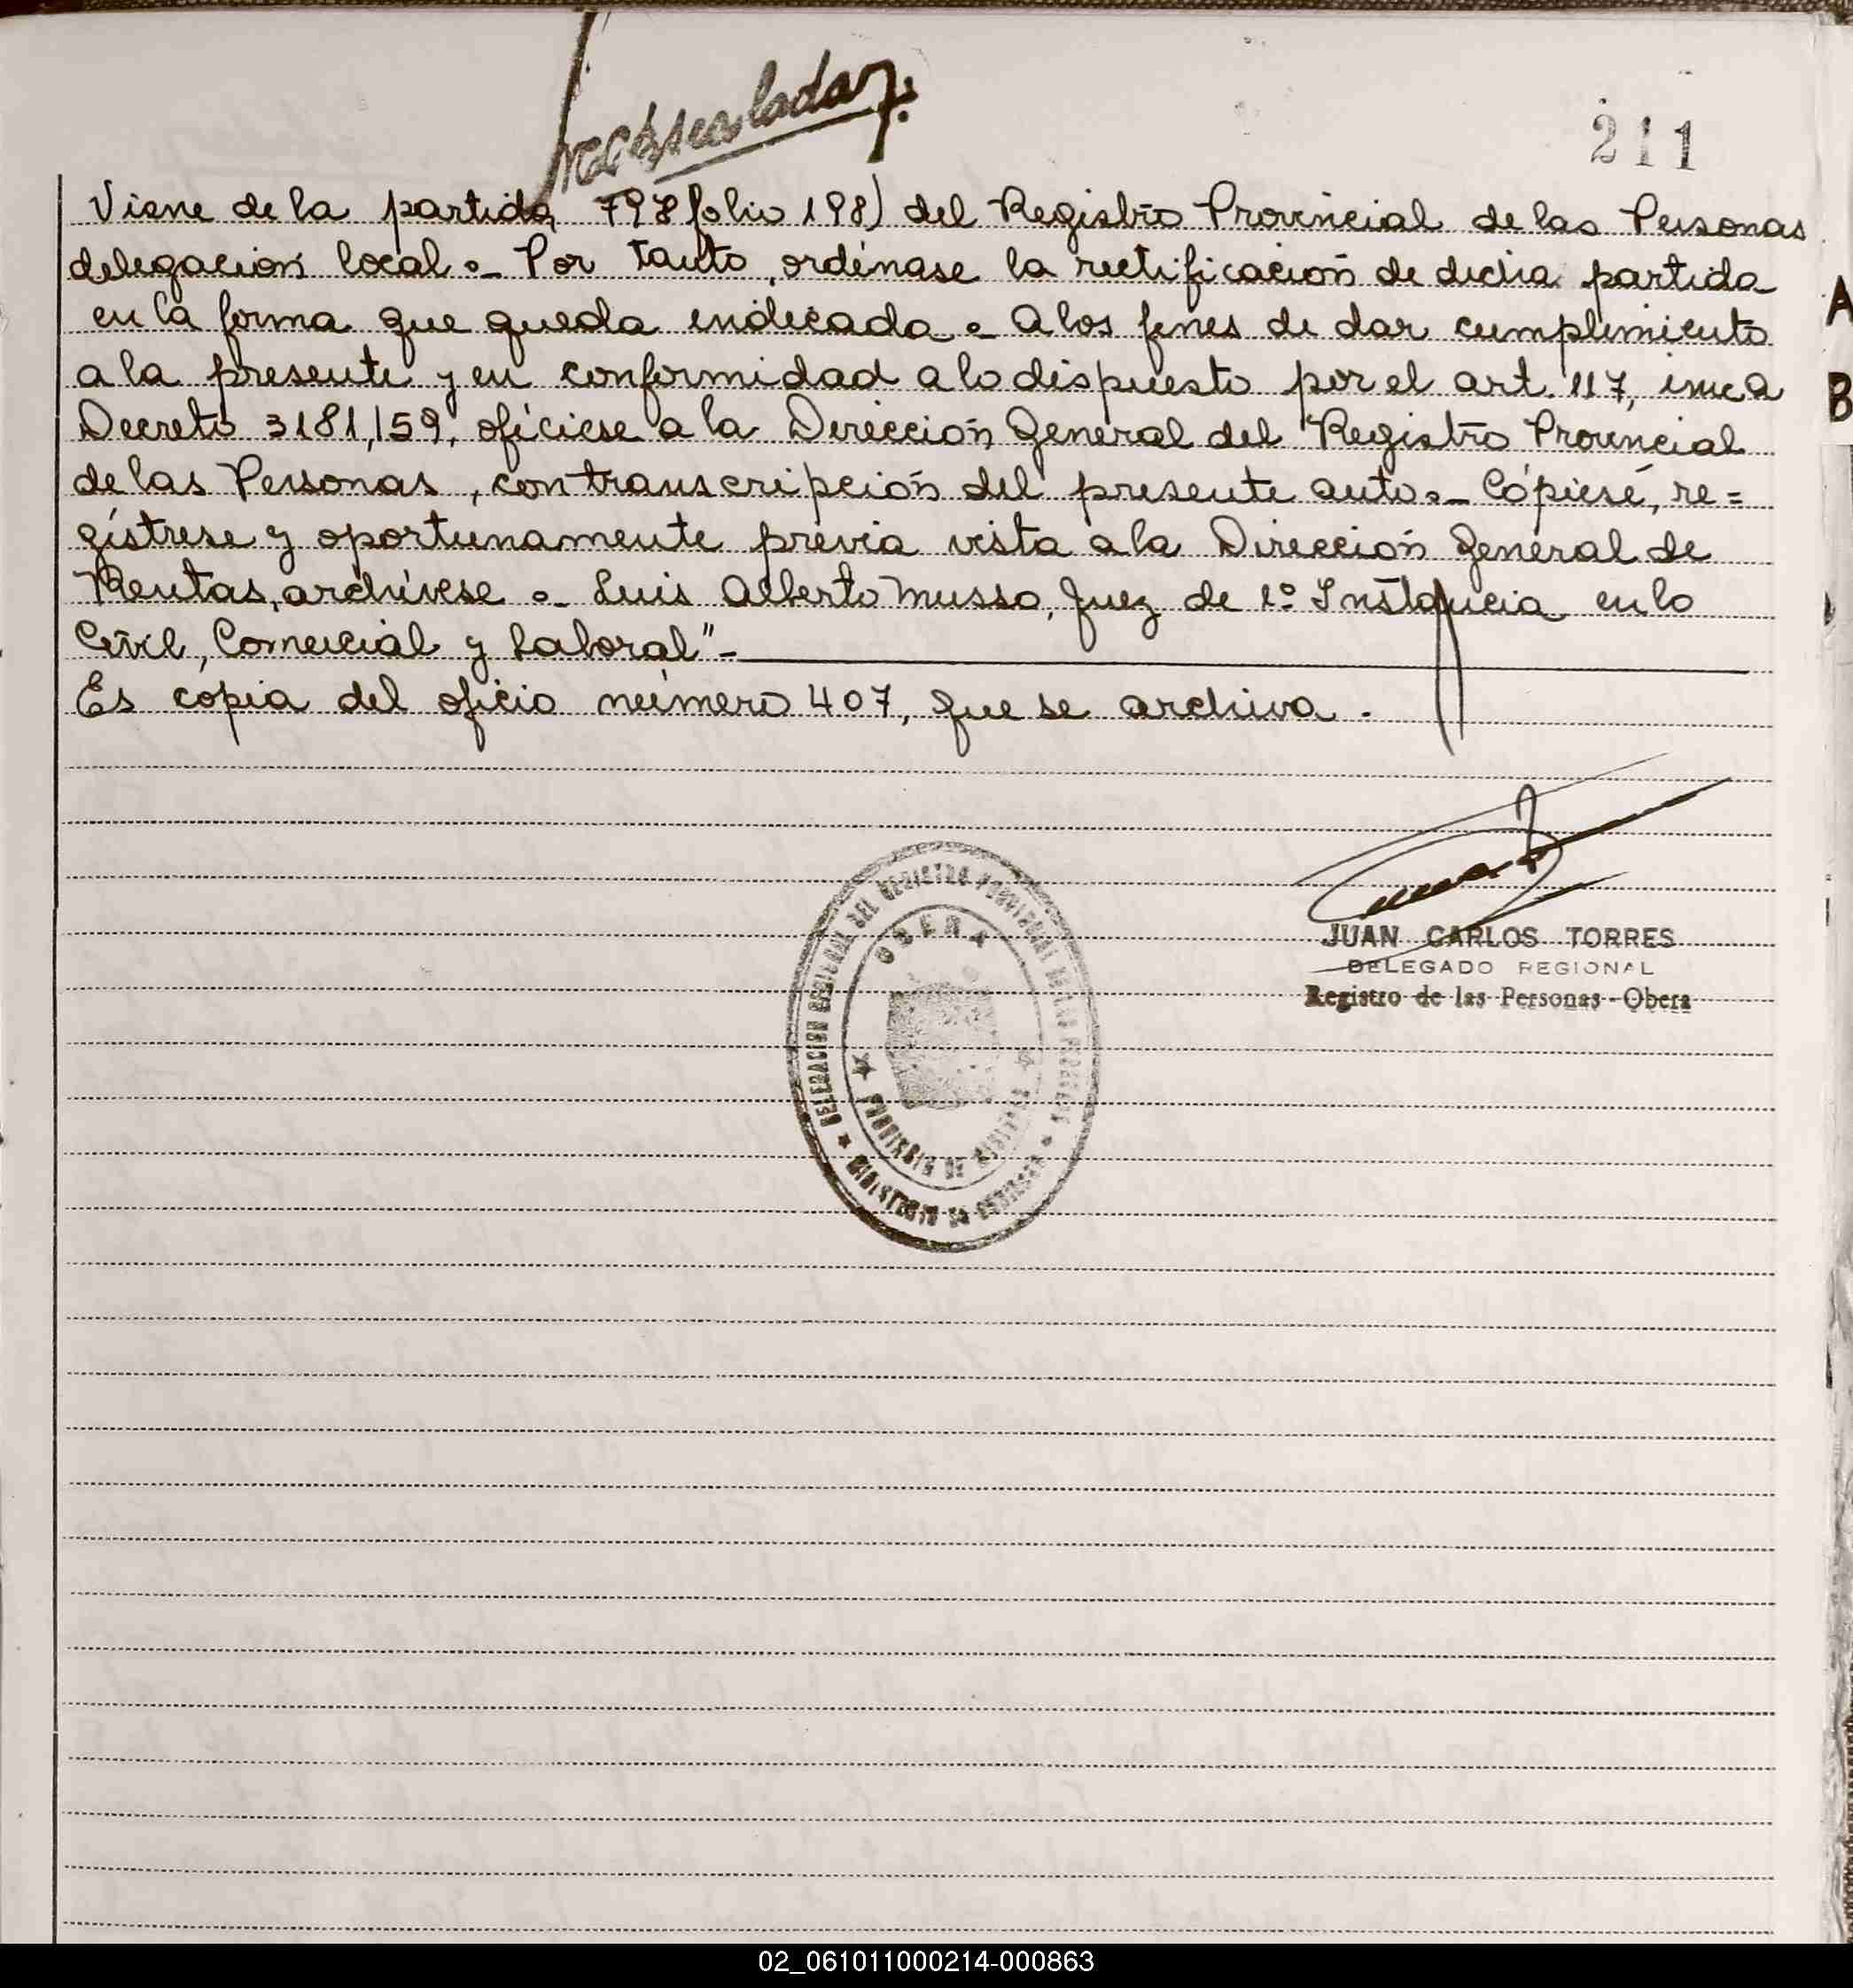 211
Viene de la partida 798 folio 198) del Registro Provincial de las Personas
delegación local.- Por tanto, ordénase la rectificación de dicha partida
en la forma que queda indicada.- A los fines de dar cumplimiento
a la presente y en conformidad a lo dispuesto por el art. 117, inc a
Decreto 3181/59, ofíciese a la Dirección General del Registro Provincial
de las Personas, con transcripción del presente auto.- Cópiese, re=
gístrese y oportunamente previa vista a la Dirección General de
Rentas, archívese.- Luis Alberto Musso, Juez de 1º Instancia en lo
Civil, Comercial y Laboral"-
Es copia del oficio número 407, que se archiva.
A
B
JUAN CARLOS TORRES
DELEGADO REGIONAL
Registro de las Personas - Obera
DELEGACION REGIONAL DEL REGISTRO PROVINCIAL DE LAS PERSONAS
OBERA
PROVINCIA DE MISIONES
MINISTERIO DE GOBIERNO
02_061011000214-000863